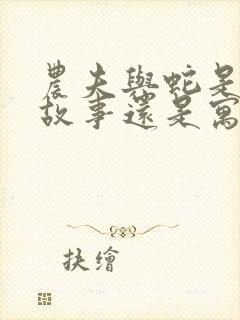 農夫與蛇是
故事還是寓
扶繪